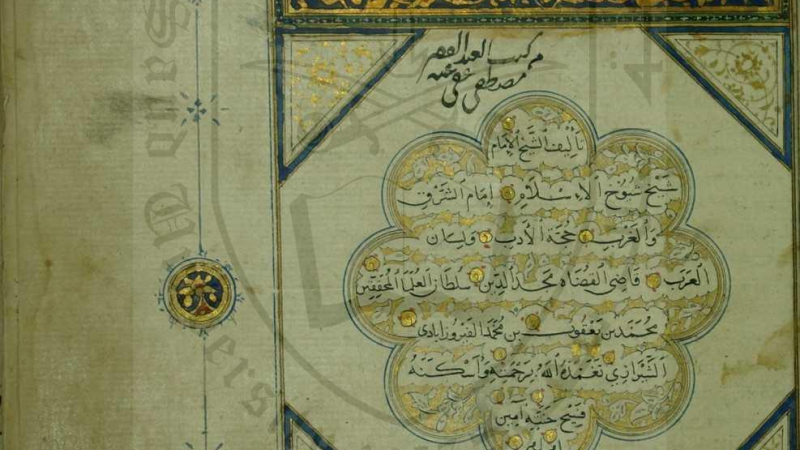 من كتب العبد الفقير
مصطفى عفي عنه
تأليف الشيخ الإمام
شيخ شيوخ الإسلام إمام الشرق
والغرب حجة الأدب ولسان
العرب قاضي القضاة مجد الدين سلطان العلماء المحققين
محمد بن يعقوب بن محمد الفيروزابادي
الشيرازي تغمده الله برحمته وأسكنه
فسيح جنته آمين
University